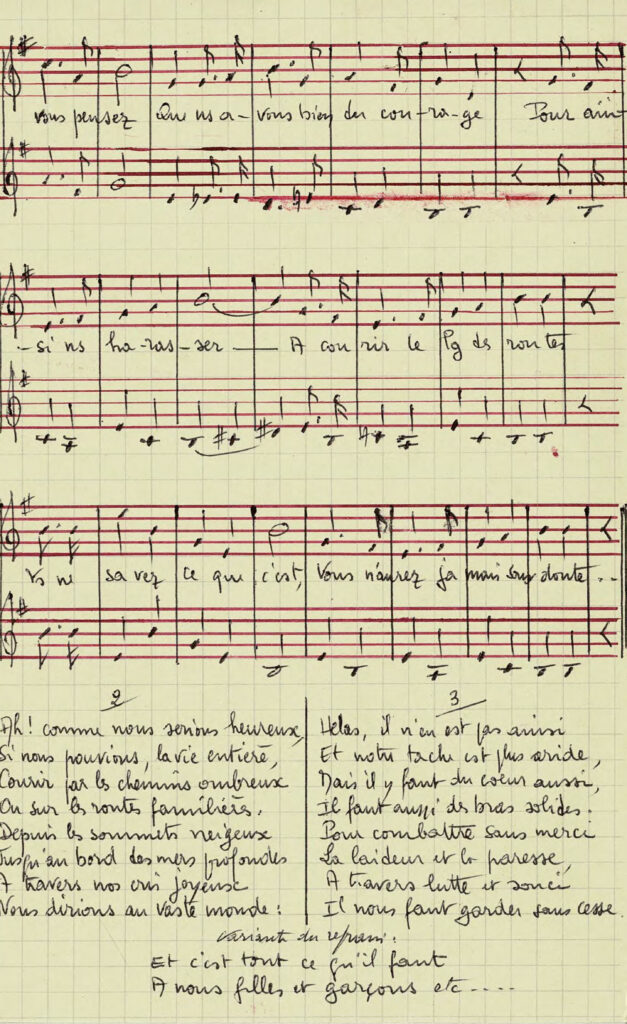 vous pensez Que ns a-vons bien du cou-ra-ge Pour ain-
-si ns ha-ras-ser — A courir le lg des routes
Vs ne savez ce que c'est, Vous n'aurez jamais sans doute..
2
Ah! comme nous serions heureux,
Si nous pouvions, la vie entière,
Courir par les chemins ombreux
Ou sur les routes familières.
Depuis les sommets neigeux
Jusqu'au bord des mers profondes
A travers nos cris joyeux
Nous dirions au vaste monde :
3
Helas, il n'en est pas ainsi
Et notre tache est plus aride,
Mais il y faut du coeur aussi,
Il faut aussi des bras solides.
Pour combattre sans merci
La laideur et la paresse,
A travers lutte et souci
Il nous faut garder sans cesse.
variante du refrain :
Et c'est tout ce qu'il faut
A nous filles et garçons etc ....